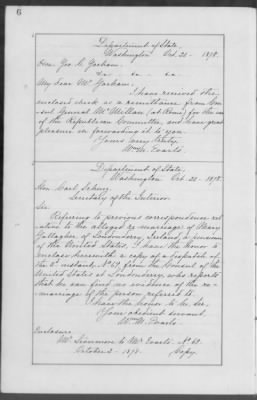 6
Department of State,
Washington Oct. 21 - 1878.
Hon. Geo. C. Gorham.
&c - &c - &c
My dear Mr. Gorham.
I have received the
enclosed check as a remittance from Con-
sul General McMillan (at Rome) for the use
of the Republican Committee, and have great
pleasure in forwarding it to you.
Yours very truly,
Wm. M. Evarts.
Department of State,
Washington Oct. 21 - 1878.
Hon. Carl Schurz,
Secretary of the Interior.
Sir.
Referring to previous correspondence rel-
ative to the alleged re-marriage of Mary
Gallagher of Londonderry, Ireland, a pensioner
of the United States, I have the honor to
enclose herewith a copy of a despatch of
the 2d instant, No. 69, from the Consul of the
United States at Londonderry, who reports
that he can find no evidence of the re-
marriage of the person referred to.
I have the honor to be, Sir,
Your obedient servant,
Wm. M. Evarts.
Enclosure
Mr. Livermore to Mr. Evarts. No 69.
October 2 - 1878. Copy.